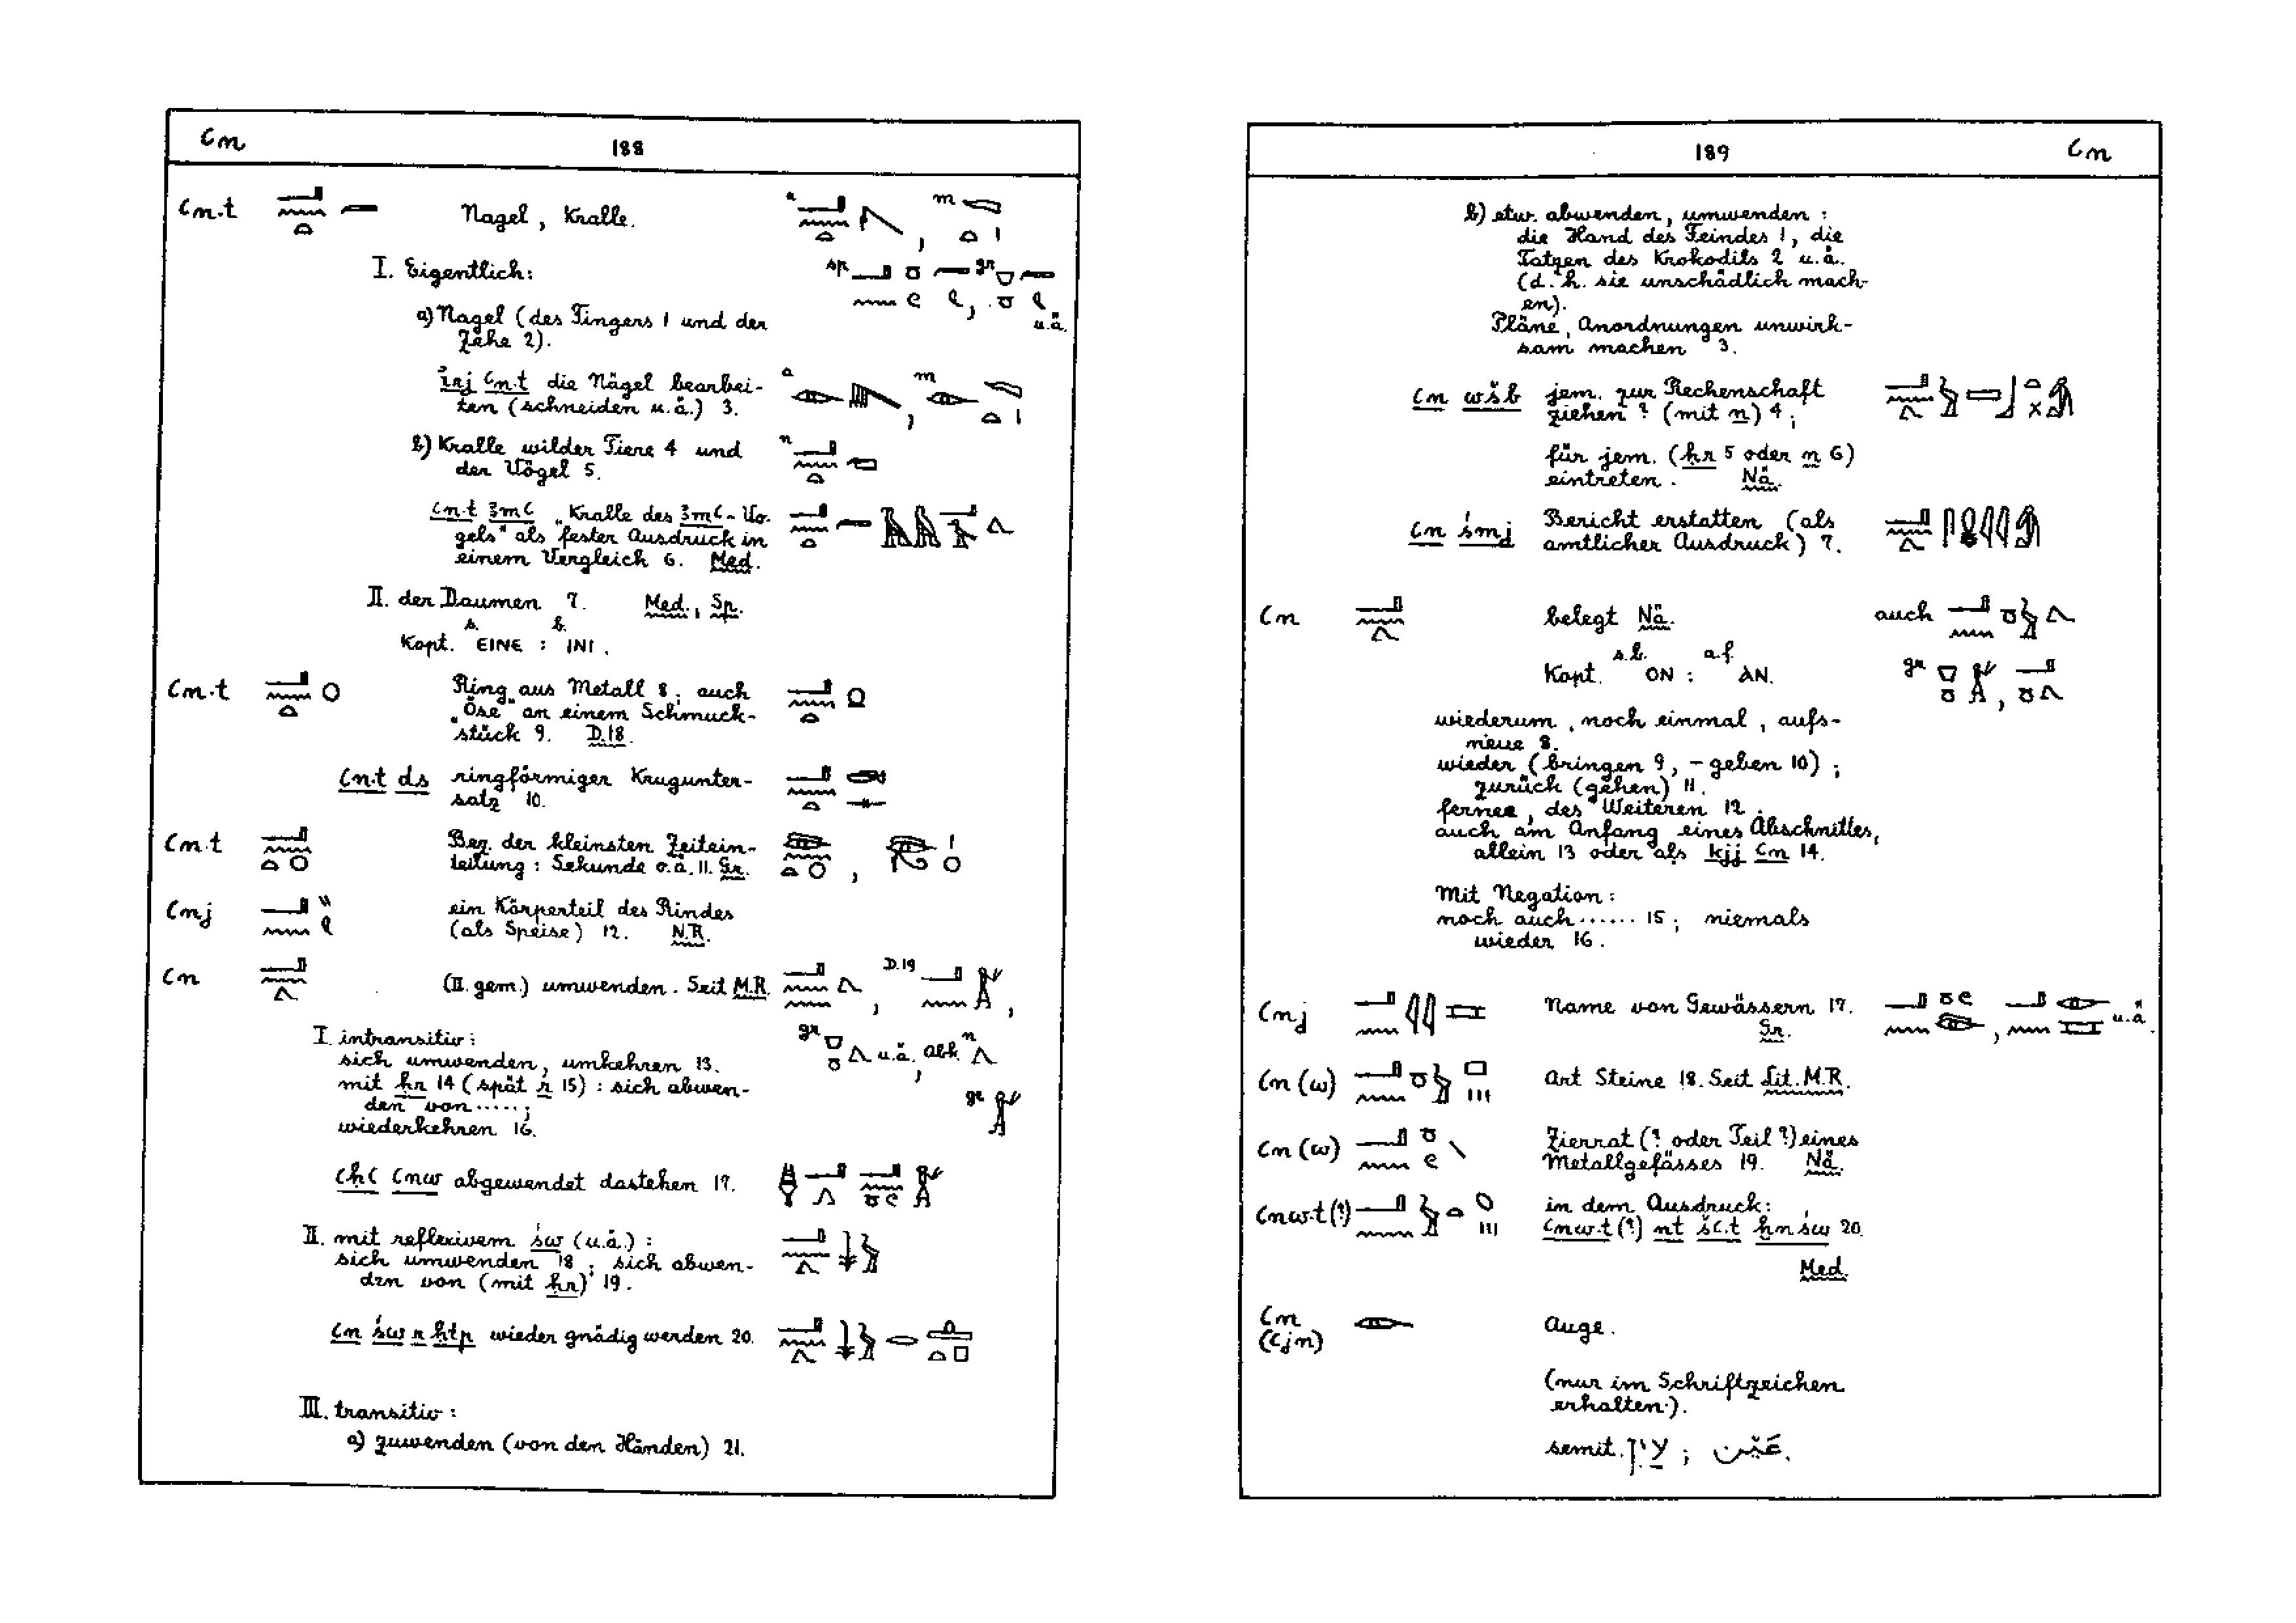 ꜥn 188
ꜥn.t Nagel, Kralle. a , m
I. Eigentlich: sp , gr u.ä.
a) Nagel (des Fingers 1 und der
Zehe 2).
irj ꜥn.t die Nägel bearbei- a , m
ten (schneiden u.ä.) 3.
b) Kralle wilder Tiere 4 und n
der Vögel 5.
ꜥn.t ꜣmꜥ „Kralle des ꜣmꜥ-Vo-
gels" als fester Ausdruck in
einem Vergleich 6. Med.
II. der Daumen 7. Med., Sp.
s. b.
Kopt. ⲉⲓⲛⲉ : ⲓⲛⲓ.
ꜥn.t Ring aus Metall 8; auch
„Öse" an einem Schmuck-
stück 9. D.18.
ꜥn.t ds ringförmiger Krugunter-
satz 10.
ꜥn.t Bez. der kleinsten Zeitein- ,
teilung: Sekunde o.ä. 11. Gr.
ꜥnj ein Körperteil des Rindes
(als Speise) 12. N.R.
ꜥn (II. gem.) umwenden. Seit M.R. , D.19 ,
I. intransitiv: gr u.ä., Abk. n
sich umwenden, umkehren 13.
mit ḥr 14 (spät r 15): sich abwen- gr
den von ·····;
wiederkehren 16.
ꜥḥꜥ ꜥnw abgewendet dastehen 17.
II. mit reflexivem św (u.ä.):
sich umwenden 18; sich abwen-
den von (mit ḥr) 19.
ꜥn św r ḥtp wieder gnädig werden 20.
III. transitiv:
a) zuwenden (von den Händen) 21.
189 ꜥn
b) etw. abwenden, umwenden:
die Hand des Feindes 1, die
Tatzen des Krokodils 2 u.ä.
(d.h. sie unschädlich mach-
en).
Pläne, Anordnungen unwirk-
sam machen 3.
ꜥn wšb jem. zur Rechenschaft
ziehen? (mit n) 4;
für jem. (ḥr 5 oder n 6)
eintreten. Nä.
ꜥn śmj Bericht erstatten (als
amtlicher Ausdruck) 7.
ꜥn belegt Nä. auch
s.b. a.f.
Kopt. ⲟⲛ : ⲁⲛ. gr ,
wiederum, noch einmal, aufs-
neue 8.
wieder (bringen 9, -geben 10);
zurück (gehen) 11.
ferner, des Weiteren 12.
auch am Anfang eines Abschnittes,
allein 13 oder als kjj ꜥn 14.
Mit Negation:
noch auch ······ 15; niemals
wieder 16.
ꜥnj Name von Gewässern 17. , u.ä.
Gr.
ꜥn(w) Art Steine 18. Seit Lit. M.R.
ꜥn(w) Zierrat (? oder Teil?) eines
Metallgefässes 19. Nä.
ꜥnw.t(?) in dem Ausdruck:
ꜥnw.t(?) nt šꜥ.t ḥnśw 20.
Med.
ꜥn Auge.
(ꜥjn)
(nur im Schriftzeichen
erhalten.).
semit. עַיִן ; عَيْن.